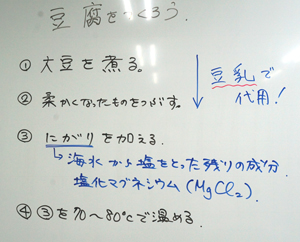 豆腐をつくろう.
① 大豆を煮る。
豆乳で
代用!
② 柔かくなったものをつぶす。
③ にがりを加える.
→海水から塩をとった残りの成分
塩化マグネシウム(MgCl₂).
④ ③を70〜80℃で温める.